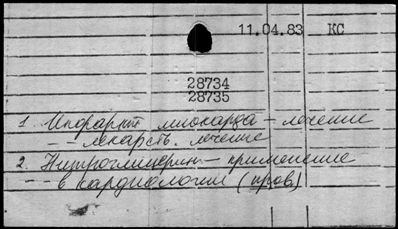 11.04.83 КС
28734
28735
1. Инфаркт миокарда – лечение
– – лекарств. лечение
2. Нитроглицерин – применение
– – в кардиологии (пров)